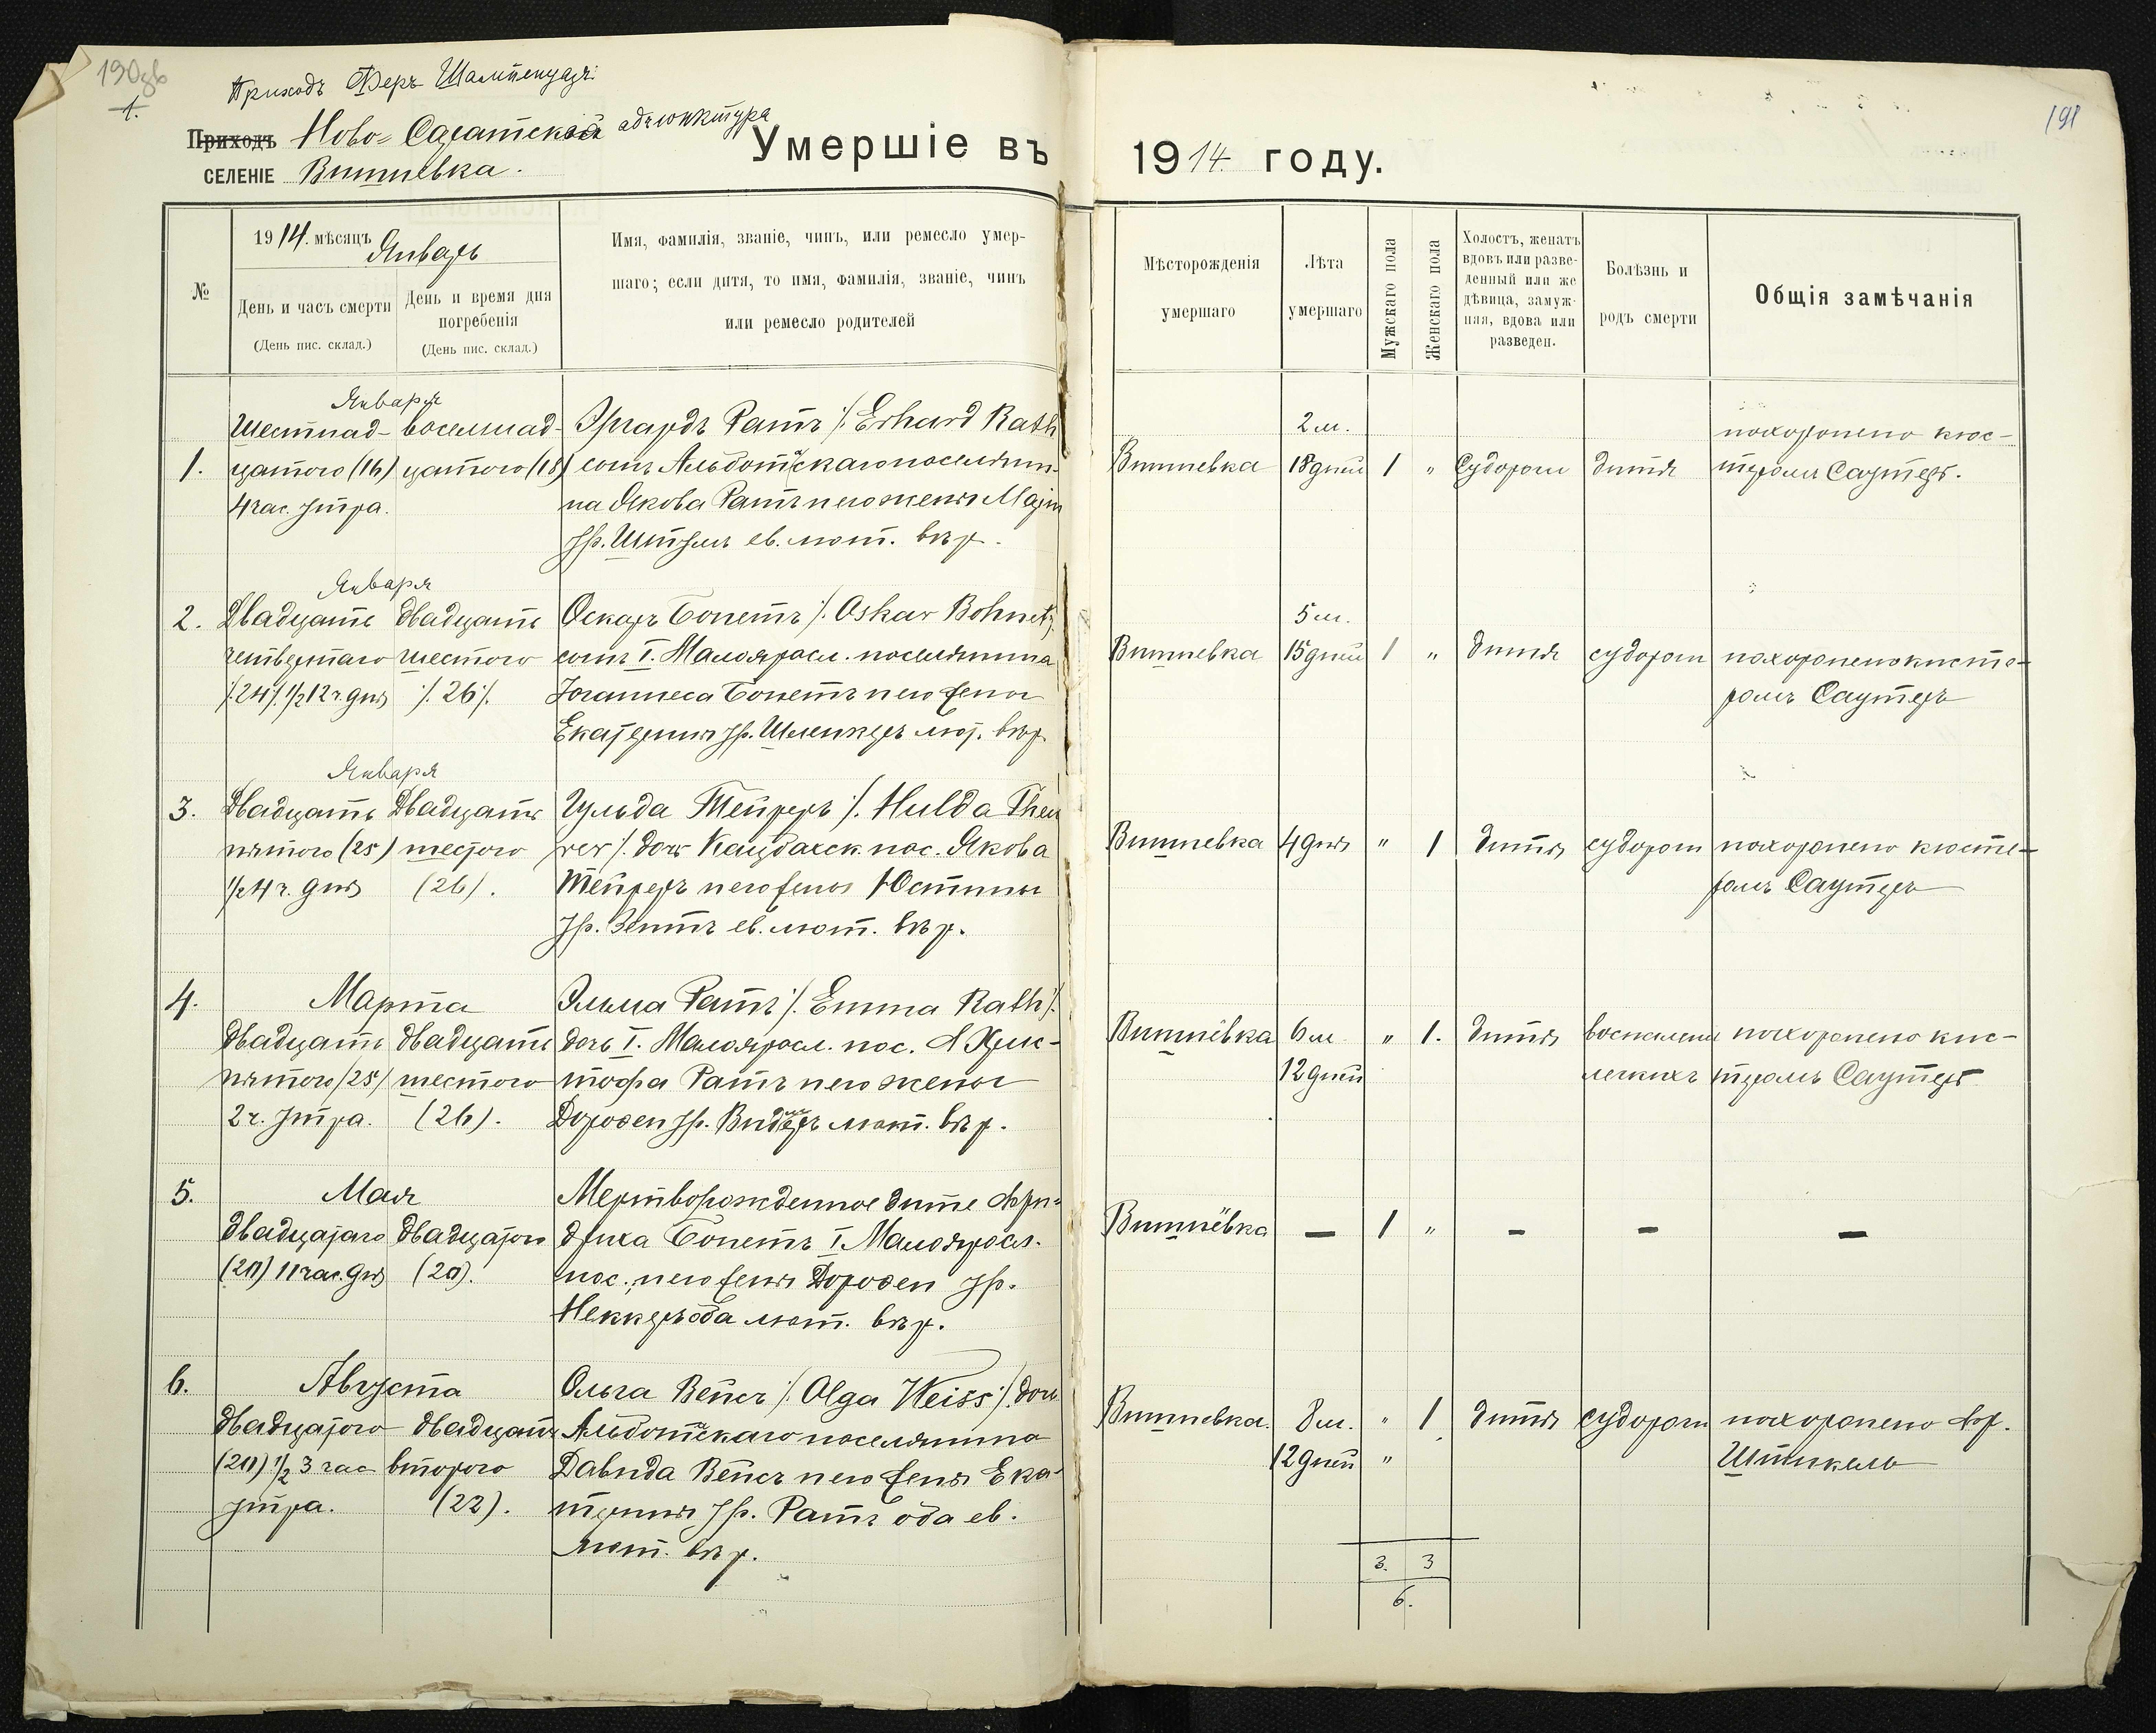 190об
1.
Приходъ Феръ Шампенуазъ
Приходъ Ново-Саратская адъюнктура
СЕЛЕНІЕ Вишневка.
Умершіе въ 1914 году.
191
№
1914. мѣсяцъ Январь
День и часъ смерти
(День пис. склад.)
День и время дня погребенія
(День пис. склад.)
Имя, фамилія, званіе, чинъ, или ремесло умер-
шаго; если дитя, то имя, фамилія, званіе, чинъ
или ремесло родителей
Мѣсторожденія умершаго
Лѣта умершаго
Мужскаго пола
Женскаго пола
Холостъ, женатъ
вдовъ или разве-
денный или же
дѣвица, замуж-
няя, вдова или
разведен.
Болѣзнь и родъ смерти
Общія замѣчанія
Января
1.
Шестнад-
цатого (16)
4 час. утра.
восемнад-
цатого (18)
Эргардъ Ратъ /: Erhard Rath
сынъ Альботскаго поселяни-
на Якова Ратъ и его жены
ур. ев. лют. вѣр.
Вишневка
2 м.
18 дней
1 "
Судороги
дитя
похоронено кюс-
теромъ Саутеръ.
Января
2.
Двадцать
четвертаго
/:24/: 1/2 12 ч. дня
двадцать
шестого
/:26/:
Оскаръ Бонетъ /: Oskar Bohnet/:
сынъ I. Малояросл. поселянина
Іоганнеса Бонетъ и его жены
Екатерины ур. Шленкеръ лют. вѣр.
Вишневка
5 м.
15 дней
1 "
дитя
судороги
похоронено кисте-
ромъ Саутеръ
Января
3.
Двадцать
пятого (25)
1/2 4 ч. дня
Двадцать
шестого
(26).
Гульда Тейреръ /: Hulda Theu
rer /: дочь пос. Якова
Тейреръ и его жены Юстины
ур. Зентъ ев. лют. вѣр.
Вишневка
4 дня
" 1
дитя
судороги
похоронено кюсте-
ромъ Саутеръ
4.
Марта
двадцать
пятого /25/
2 ч. утра.
двадцать
шестого
(26).
Эмма Ратъ /: Emma Rath/:
дочь I. Малояросл. пос. Хрис-
тофа Ратъ и его жены
Доротеи ур. лют. вѣр.
Вишнёвка
6 м.
12 дней
" 1.
дитя
воспаленіе
легкихъ
похоронено кис-
теромъ Саутеръ
5.
Мая
двадцатаго
(20) 11 час. дня
двадцатого
(20).
Мертворожденное дитя Фри-
дриха Бонетъ I. Малояросл.
пос., и его жены Доротеи ур.
Неккеръ оба лют. вѣр.
Вишнёвка
— 1 " — — —
6.
Августа
двадцатого
(20) 1/2 3 час
утра.
двадцать
второго
(22).
Ольга Вейсъ /: Olga Weiss /: дочь
Альботскаго поселянина
Давида Вейсъ и его жены Ека-
терины ур. Ратъ оба ев.
лют. вѣр.
Вишневка.
8 м.
12 дней
" 1
"
дитя
судороги
похоронено Фр.
Штикель
3. 3
6.